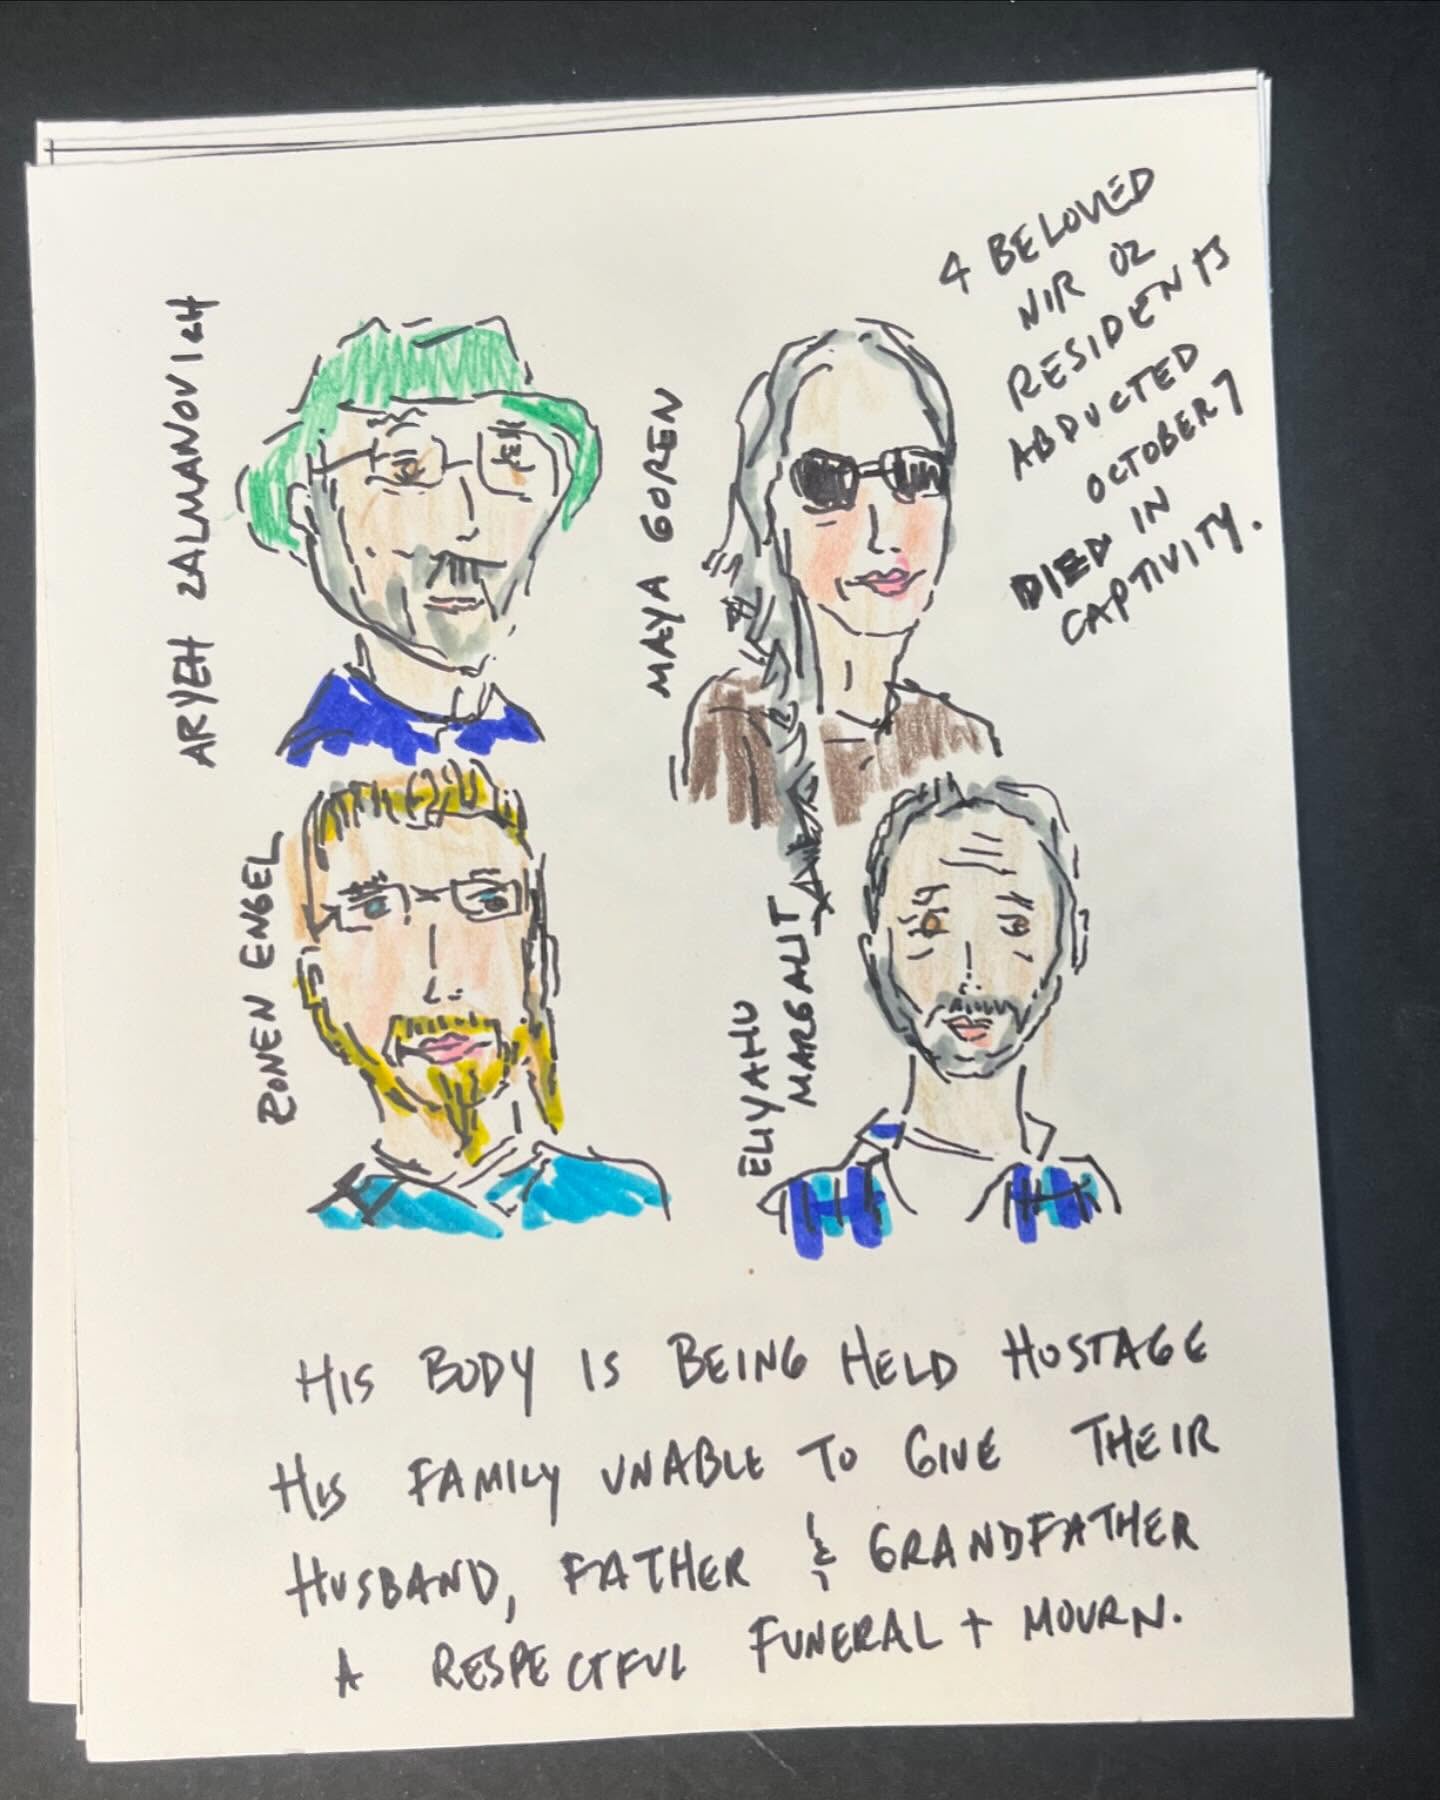 4 BELOVED
NIR OZ
RESIDENTS
ABDUCTED
OCTOBER 7
DIED IN
CAPTIVITY.
ARYEH ZALMANOVICH
MAYA GOREN
RONEN ENGEL
ELIYAHU
MARGALIT
HIS BODY IS BEING HELD HOSTAGE
HIS FAMILY UNABLE TO GIVE THEIR
HUSBAND, FATHER & GRANDFATHER
A RESPECTFUL FUNERAL + MOURN.